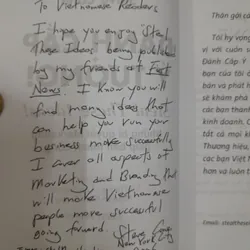 To Vietnamese Readers
I hope you enjoy
These Ideas being published
by my friends at First
News. I know you will
find many ideas that
can help you run your
business more successfully
I cover all aspects of
Marketing and Branding that
will make Vietnamese
people more successful
Going forward.
New York
Thân gửi
Tôi hy vọng
vị với cuốn
Đánh Cắp Ý
bạn của tôi
bán và phát
sẽ khám phá
các bạn thành
kinh doanh.
tất cả mọi
Thương hiệu,
các bạn Việt
hơn và luôn
Email: